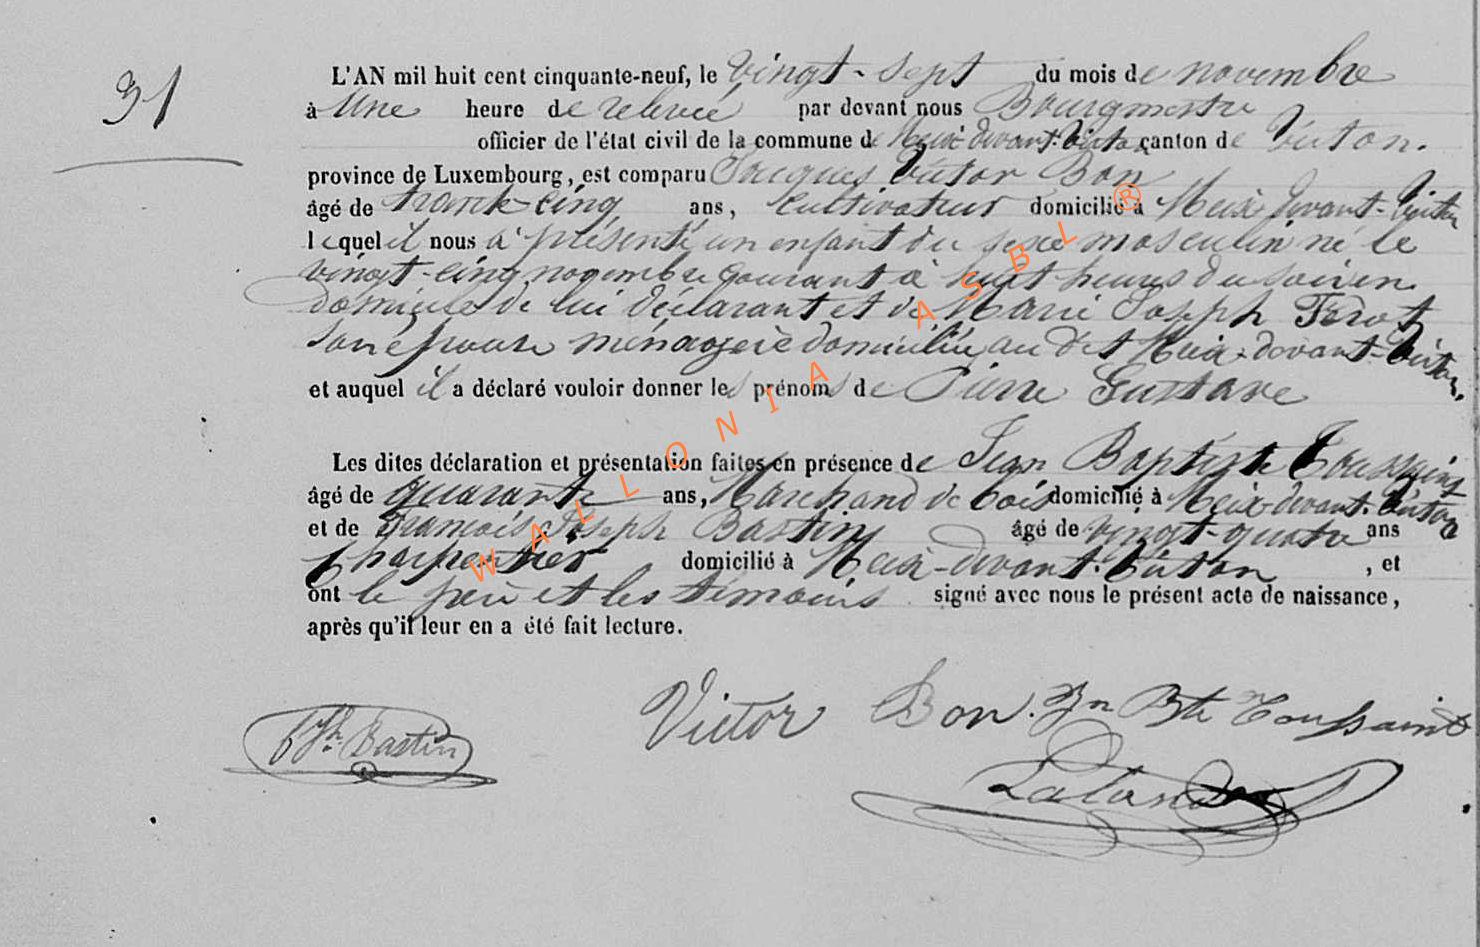 31
L'AN mil huit cent cinquante-neuf, le Vingt-sept du mois de novembre
à Une heure de relevée par devant nous Bourgmestre
officier de l'état civil de la commune de Meix-devant-Virton canton de Virton.
province de Luxembourg, est comparu Jacques Victor Bon
âgé de trente-cinq ans, Cultivateur domicilié à Meix-devant-Virton
lequel il nous a présenté un enfant du sexe masculin né le
vingt-cinq novembre courant à huit heures du soir en
domicile de lui déclarant et de Marie Joseph
son épouse ménagère domiciliée au dit Meix-devant-Virton,
et auquel il a déclaré vouloir donner les prénoms de Pierre Gustave
Les dites déclaration et présentation faites en présence de Jean Baptiste Toussaint
âgé de quarante ans, Marchand de bois domicilié à Meix-devant-Virton
et de François Joseph Bastin âgé de vingt-quatre ans
Charpentier domicilié à Meix-devant-Virton , et
ont le père et les témoins signé avec nous le présent acte de naissance,
après qu'il leur en a été fait lecture.
Victor Bon. Jn Bte Toussaint
Bastin
WALLONIA ASBL ®